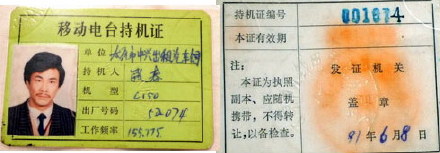 移动电台持机证
单位
持机人
机型 C150
出厂号码 52074
工作频率 155,775
持机证编号 001674
本证有效期
注:
本证为执照
副本、应随机
携带,不得转
让,以备检查。
发证机关
盖章
91年6月8日